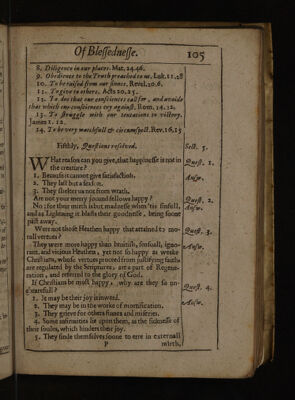 Of Blessednesse. 105
8. Diligence in our places. Mat. 24.46.
9. Obedience to the Truth preached to us. Luk. 11.28
10. To be raised from our sinnes. Revel. 20.6.
11. To give to others. Acts 20.35.
12. To doe that our consciences call for, and avoide
that which our consciences cry against. Rom. 14.22.
13. To struggle with our tentations to victory.
James 1. 12.
14. To be very watchfull & circumspect. Rev. 16.15
Fifthly, Questions resolved. Sect. 5.
WHat reason can you give, that happinesse is not in Quest. 1.
the creature?
1. Because it cannot give satisfaction. Answ.
2. They last but a season.
3. They shelter us not from wrath.
Are not your merry jocund fellows happy? Quest. 2.
No; for their mirth is but madnesse when 'tis sinfull, Answ.
and as Lightning it blasts their goodnesse, being soone
past away.
Were not those Heathen happy that attained to mo- Quest. 3.
rall vertues?
They were more happy than brutish, sensuall, igno- Answ.
rant, and vicious Heathen, yet not so happy as weake
Christians, whose vertues proceed from justifying faith;
are regulated by the Scriptures; are a part of Regene-
ration, and referred to the glory of God.
If Christians be most happy, why are they so un- Quest. 4.
chearefull?
1. It may be their joy is inward. Answ.
2. They may be in the worke of mortification.
3. They grieve for others sinnes and miseries.
4. Some infirmities lie upon them, as the sicknesse of
their soules, which hinders their joy.
5. They finde themselves soone to erre in externall
P mirth,